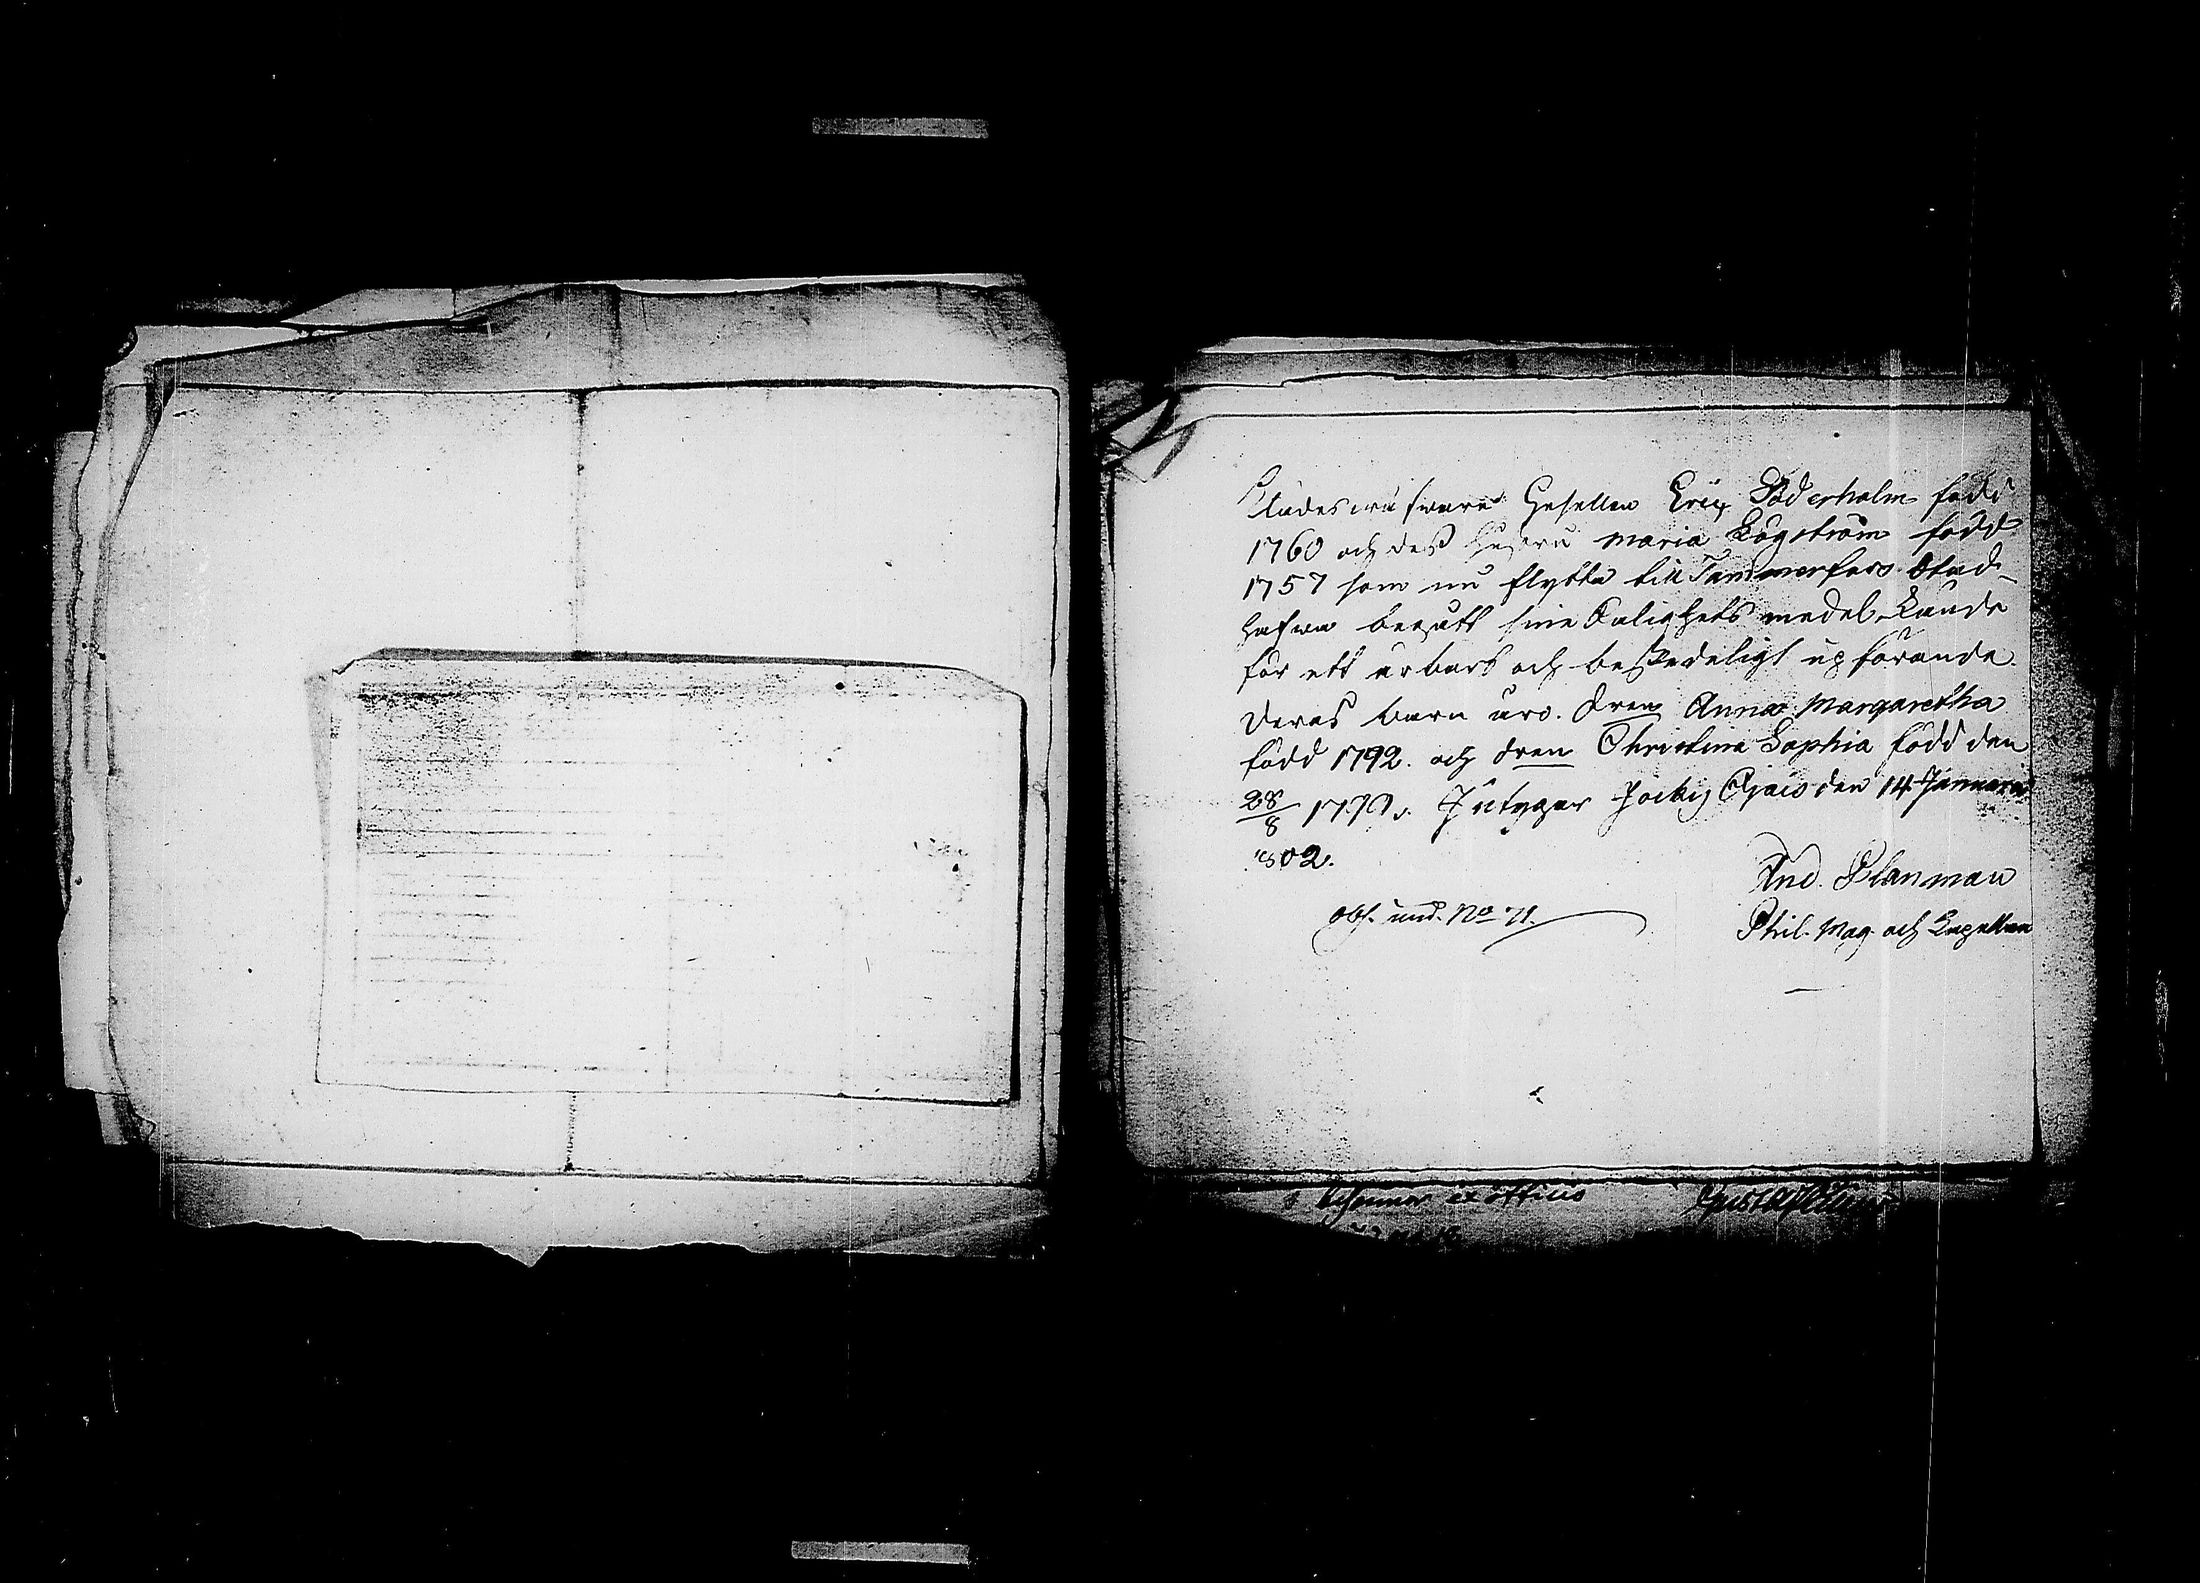 Klädeswäfware Gesellen Eric Söderholm född
1760 och des Hustru Maria Lögström född
1757 som nu flytta till Tammerfors Stad
hafwa begått sine Salighets medel. Kände
för ett ärbart och beskedeligt upförande.
Deras barn äro. dren Anna Margaretha
född 1792. och dren Christina Sophia född den
28/8 179 Intygar Jockis den 14 Januarii
1802.
And. Planman
Obs. und. No 71.
Phil. Mag. och Capellan
ex officio